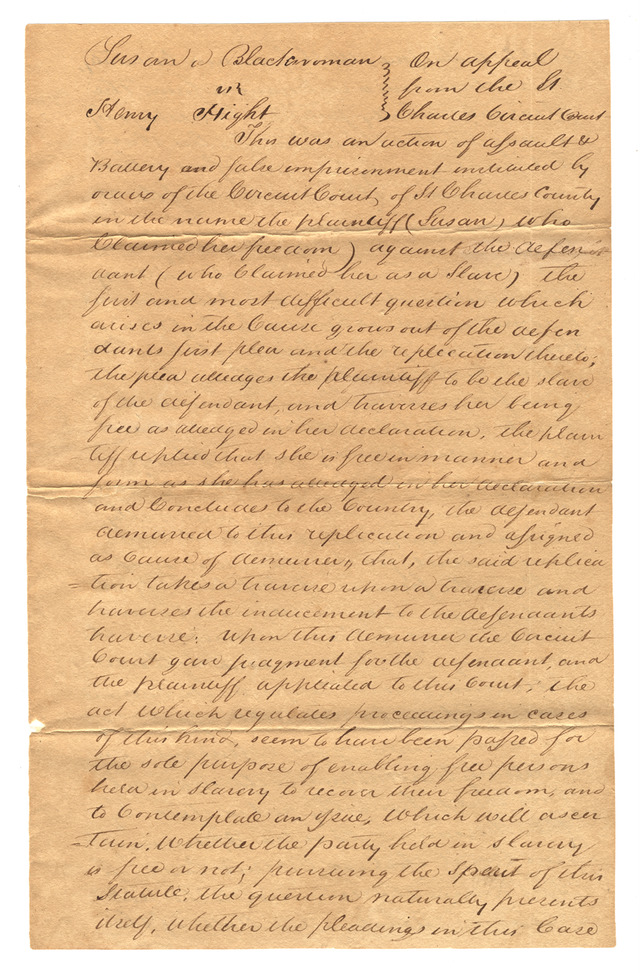 Susan a Blackwoman
vs
Henry Hight
On appeal
from the St
Charles Circuit Court
This was an action of assault &
Battery and false imprisonment instituted by
order of the Circuit Court, of St Charles County
in the name the plaintiff (Susan, who
Claimed her freedom) against the defen
dant (who Claimed her as a Slave) the
first and most difficult question which
arises in the Cause grows out of the defen
dants first plea and the replication thereto;
the plea alledges the plaintiff to be the slave
of the defendant, and traverses her being
free as alledged in her declaration, the plain
tiff replied that she is free in manner and
form as she has alledged in her declaration
and Concludes to the Country, the defendant
demurred to this replication and assigned
as Cause of demurrer, that, the said replica
=tion takes a traverse upon a traverse and
traverses the inducement to the defendants
traverse; upon this demurrer the Circuit
Court gave judgment for the defendant, and
the plaintiff appealed to this Court; the
act which regulates proceedings in cases
of this kind, seem to have been passed for
the sole purpose of enabling free persons
held in slavery to recover their freedom, and
to Contemplate an issue, which will ascer
=tain, whether the party held in slavery
is free or not; pursuing the spirit of this
Statute, the question naturally presents
itself, whether the pleadings in this Case